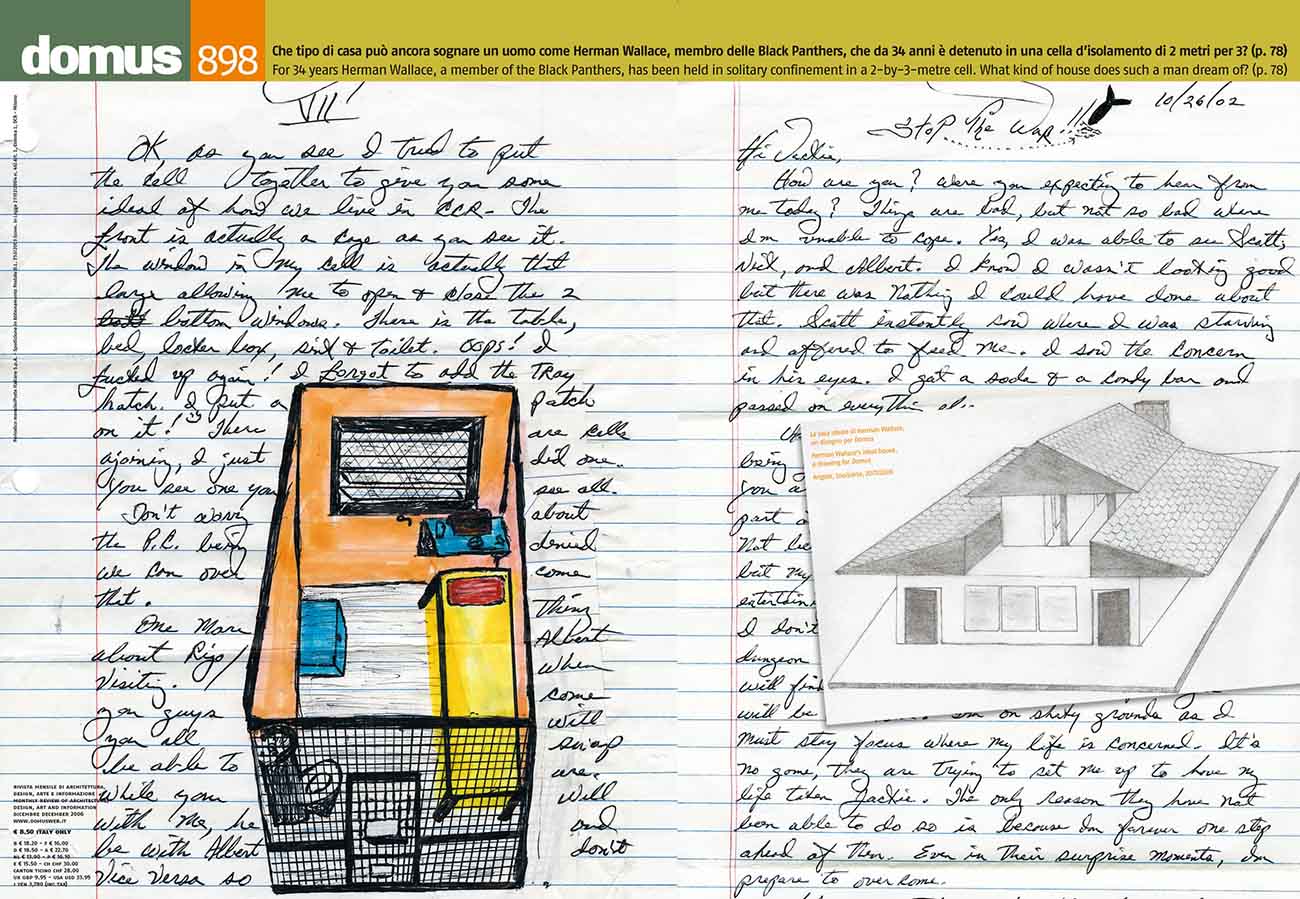 domus 898
Che tipo di casa può ancora sognare un uomo come Herman Wallace, membro delle Black Panthers, che da 34 anni è detenuto in una cella d'isolamento di 2 metri per 3? (p. 78)
For 34 years Herman Wallace, a member of the Black Panthers, has been held in solitary confinement in a 2-by-3-metre cell. What kind of house does such a man dream of? (p. 78)
VII
OK, as you see I tried to put
the cell together to give you some
ideal of how we live in CCR - The
front is actually a cage as you see it.
The window in my cell is actually that
large allowing me to open & close the 2
bottom windows. There is the table,
bed, locker box, sink & toilet. OOPS! I
fucked up again! I forgot to add the Tray
hatch. I put a patch
on it! There are cells
ajoining, I just did one.
You see one you see all.
Don't worry about
the P.C. being denied
we can over come
that.
One More Thing
about Rigo/ Albert
Visiting. When
you guys come
you all will
be able to swap
while you are.
with me, he will
be with Albert and
Vice Versa so don't
RIVISTA MENSILE DI ARCHITETTURA,
DESIGN, ARTE E INFORMAZIONE
MONTHLY REVIEW OF ARCHITECTURE,
DESIGN, ART AND INFORMATION
DICEMBRE DECEMBER 2006
WWW.DOMUSWEB.IT
€ 8,50 ITALY ONLY
CANTON TICINO CHF 28.00
10/26/02
Stop The War!!!
Hi Jackie,
How are you? Were you expecting to hear from
me today? Things are bad, but not so bad where
I'm unable to cope. Yes, I was able to see Scott,
Nick, and Albert. I know I wasn't looking good
but there was nothing I could have done about
that. Scott instantly saw where I was starving
and offered to feed me. I saw the concern
in his eyes. I got a soda & a candy bar and
passed on everything
being
you
part
Not
but my
I don't
dungeon
will find
will be on shity grounds as I
Must stay focus where my life is concerned. It's
no game, they are trying to set me up to have my
life taken Jackie. The only reason they have not
been able to do so is because I'm forever one step
ahead of them. Even in their surprise moments, I'm
prepare to overcome.
La casa ideale di Herman Wallace,
un disegno per Domus
Herman Wallace's ideal house,
a drawing for Domus